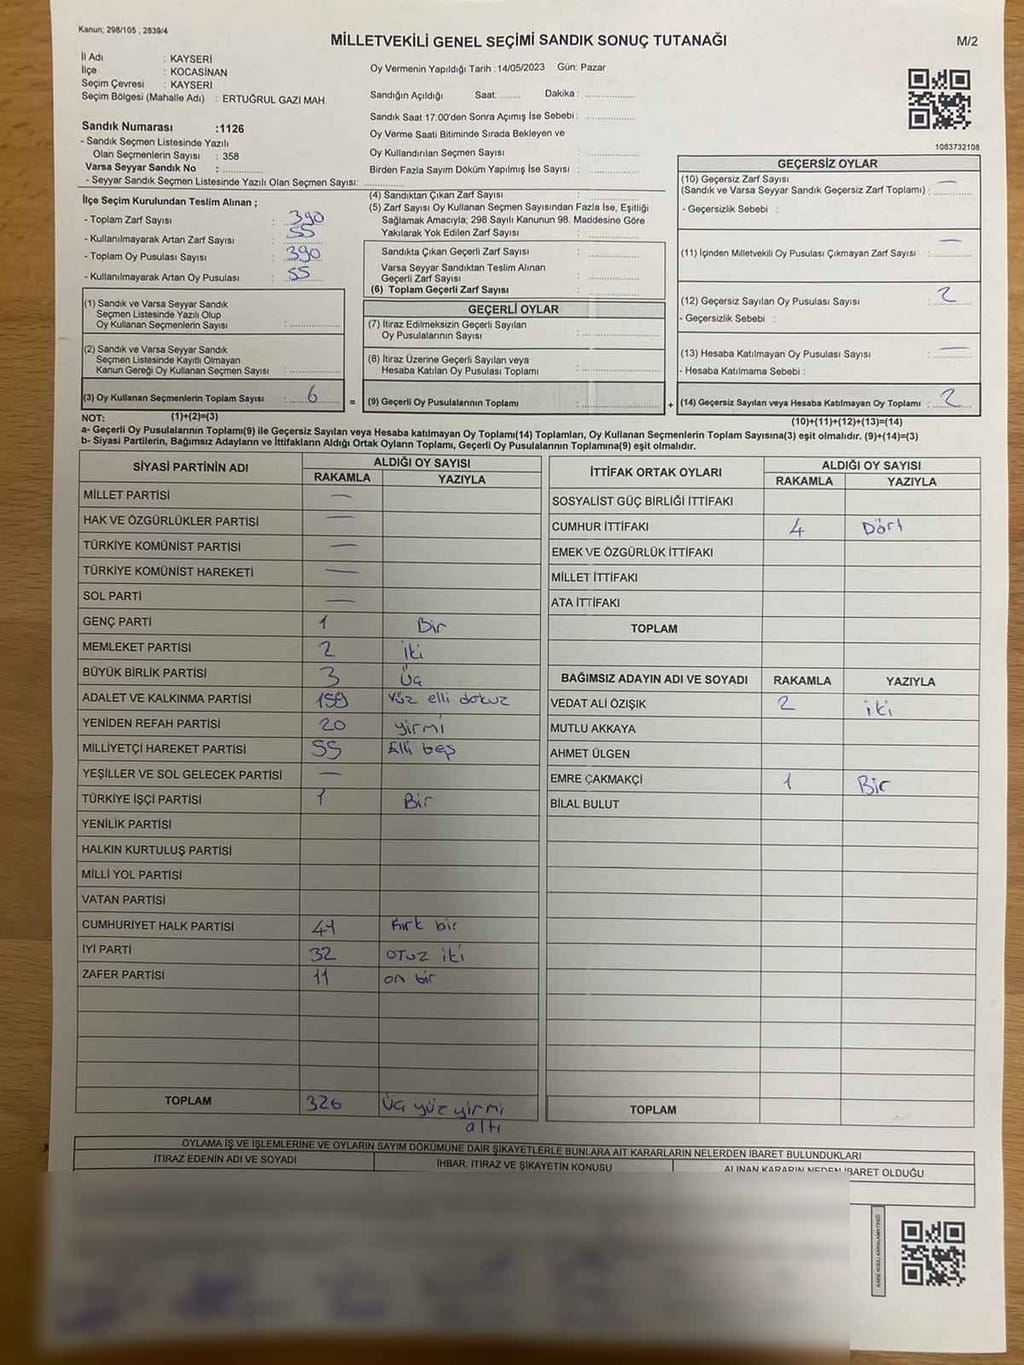 Kanun; 298/105 , 2839/4
MİLLETVEKİLİ GENEL SEÇİMİ SANDIK SONUÇ TUTANAĞI
M/2
İl Adı : KAYSERİ
İlçe : KOCASİNAN
Seçim Çevresi : KAYSERİ
Seçim Bölgesi (Mahalle Adı) : ERTUĞRUL GAZI MAH.
Sandık Numarası :1126
- Sandık Seçmen Listesinde Yazılı
Olan Seçmenlerin Sayısı : 358
Varsa Seyyar Sandık No :
- Seyyar Sandık Seçmen Listesinde Yazılı Olan Seçmen Sayısı:
İlçe Seçim Kurulundan Teslim Alınan ;
- Toplam Zarf Sayısı : 390
- Kullanılmayarak Artan Zarf Sayısı : 55
- Toplam Oy Pusulası Sayısı : 390
- Kullanılmayarak Artan Oy Pusulası : 55
(1) Sandık ve Varsa Seyyar Sandık
Seçmen Listesinde Yazılı Olup
Oy Kullanan Seçmenlerin Sayısı :
(2) Sandık ve Varsa Seyyar Sandık
Seçmen Listesinde Kayıtlı Olmayan
Kanun Gereği Oy Kullanan Seçmen Sayısı :
(3) Oy Kullanan Seçmenlerin Toplam Sayısı : 6
Oy Vermenin Yapıldığı Tarih :14/05/2023 Gün: Pazar
Sandığın Açıldığı Saat: Dakika :
Sandık Saat 17:00'den Sonra Açımış İse Sebebi :
Oy Verme Saati Bitiminde Sırada Bekleyen ve
Oy Kullandırılan Seçmen Sayısı :
Birden Fazla Sayım Döküm Yapılmış İse Sayısı :
(4) Sandıktan Çıkan Zarf Sayısı :
(5) Zarf Sayısı Oy Kullanan Seçmen Sayısından Fazla İse, Eşitliği
Sağlamak Amacıyla; 298 Sayılı Kanunun 98. Maddesine Göre
Yakılarak Yok Edilen Zarf Sayısı :
Sandıkta Çıkan Geçerli Zarf Sayısı :
Varsa Seyyar Sandıktan Teslim Alınan
Geçerli Zarf Sayısı :
(6) Toplam Geçerli Zarf Sayısı :
GEÇERLİ OYLAR
(7) İtiraz Edilmeksizin Geçerli Sayılan
Oy Pusulalarının Sayısı :
(8) İtiraz Üzerine Geçerli Sayılan veya
Hesaba Katılan Oy Pusulası Toplamı :
= (9) Geçerli Oy Pusulalarının Toplamı :
1083732108
GEÇERSİZ OYLAR
(10) Geçersiz Zarf Sayısı —
(Sandık ve Varsa Seyyar Sandık Geçersiz Zarf Toplamı) :
- Geçersizlik Sebebi :
(11) İçinden Milletvekili Oy Pusulası Çıkmayan Zarf Sayısı : —
(12) Geçersiz Sayılan Oy Pusulası Sayısı : 2
- Geçersizlik Sebebi :
(13) Hesaba Katılmayan Oy Pusulası Sayısı : —
- Hesaba Katılmama Sebebi :
+ (14) Geçersiz Sayılan veya Hesaba Katılmayan Oy Toplamı : 2
NOT: (1)+(2)=(3) (10)+(11)+(12)+(13)=(14)
a- Geçerli Oy Pusulalarının Toplamı(9) ile Geçersiz Sayılan veya Hesaba katılmayan Oy Toplamı(14) Toplamları, Oy Kullanan Seçmenlerin Toplam Sayısına(3) eşit olmalıdır. (9)+(14)=(3)
b- Siyasi Partilerin, Bağımsız Adayların ve İttifakların Aldığı Ortak Oyların Toplamı, Geçerli Oy Pusulalarının Toplamına(9) eşit olmalıdır.
SİYASİ PARTİNİN ADI ALDIĞI OY SAYISI
RAKAMLA YAZIYLA
MİLLET PARTİSİ —
HAK VE ÖZGÜRLÜKLER PARTİSİ —
TÜRKİYE KOMÜNİST PARTİSİ —
TÜRKİYE KOMÜNİST HAREKETİ —
SOL PARTİ —
GENÇ PARTİ 1 Bir
MEMLEKET PARTİSİ 2 iki
BÜYÜK BİRLİK PARTİSİ 3 Üç
ADALET VE KALKINMA PARTİSİ 159 Yüz elli dokuz
YENİDEN REFAH PARTİSİ 20 yirmi
MİLLİYETÇİ HAREKET PARTİSİ 55 Elli beş
YEŞİLLER VE SOL GELECEK PARTİSİ —
TÜRKİYE İŞÇİ PARTİSİ 1 Bir
YENİLİK PARTİSİ
HALKIN KURTULUŞ PARTİSİ
MİLLİ YOL PARTİSİ
VATAN PARTİSİ
CUMHURİYET HALK PARTİSİ 41 Kırk bir
İYİ PARTİ 32 otuz iki
ZAFER PARTİSİ 11 on bir
TOPLAM 326 Üç yüz yirmi
altı
İTTİFAK ORTAK OYLARI ALDIĞI OY SAYISI
RAKAMLA YAZIYLA
SOSYALİST GÜÇ BİRLİĞİ İTTİFAKI
CUMHUR İTTİFAKI 4 Dört
EMEK VE ÖZGÜRLÜK İTTİFAKI
MİLLET İTTİFAKI
ATA İTTİFAKI
TOPLAM
BAĞIMSIZ ADAYIN ADI VE SOYADI RAKAMLA YAZIYLA
VEDAT ALİ ÖZIŞIK 2 iki
MUTLU AKKAYA
AHMET ÜLGEN
EMRE ÇAKMAKÇİ 1 Bir
BİLAL BULUT
TOPLAM
OYLAMA İŞ VE İŞLEMLERİNE VE OYLARIN SAYIM DÖKÜMÜNE DAİR ŞİKAYETLERLE BUNLARA AİT KARARLARIN NELERDEN İBARET BULUNDUKLARI
İTİRAZ EDENİN ADI VE SOYADI İHBAR, İTİRAZ VE ŞİKAYETİN KONUSU ALINAN KARARIN NEDEN İBARET OLDUĞU